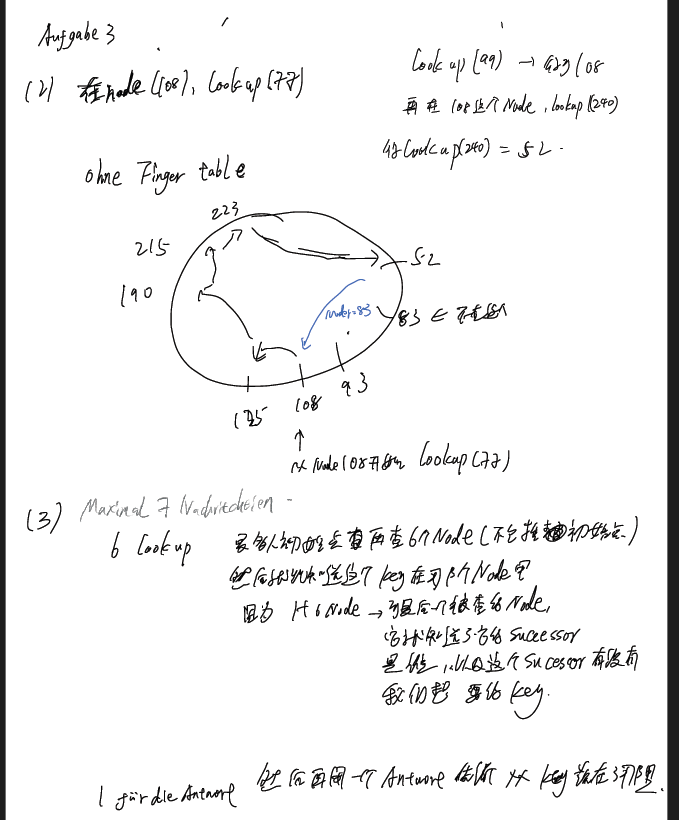 Aufgabe 3
(2) 在node (108), Lookup(77)
Lookup(99) → 得到108
再在108这个Node, lookup(240)
得Lookup(240) = 52.
ohne Finger table
223
215
52
190
Node=83
83 ←
93
108
↑
从Node108开始 Lookup(77)
(3) Maximal 7 Nachrichten
6 Lookup 最多从初始点再查6个Node (不包括初始点)
然后就知道这个key在哪个Node里
因为 1+6Node → 最后一个被查的Node,
它就知道了它的Successor
是谁, 以及这个Sucessor有没有
我们想要的key.
1 für die Antwort 然后再用一个Antwort key